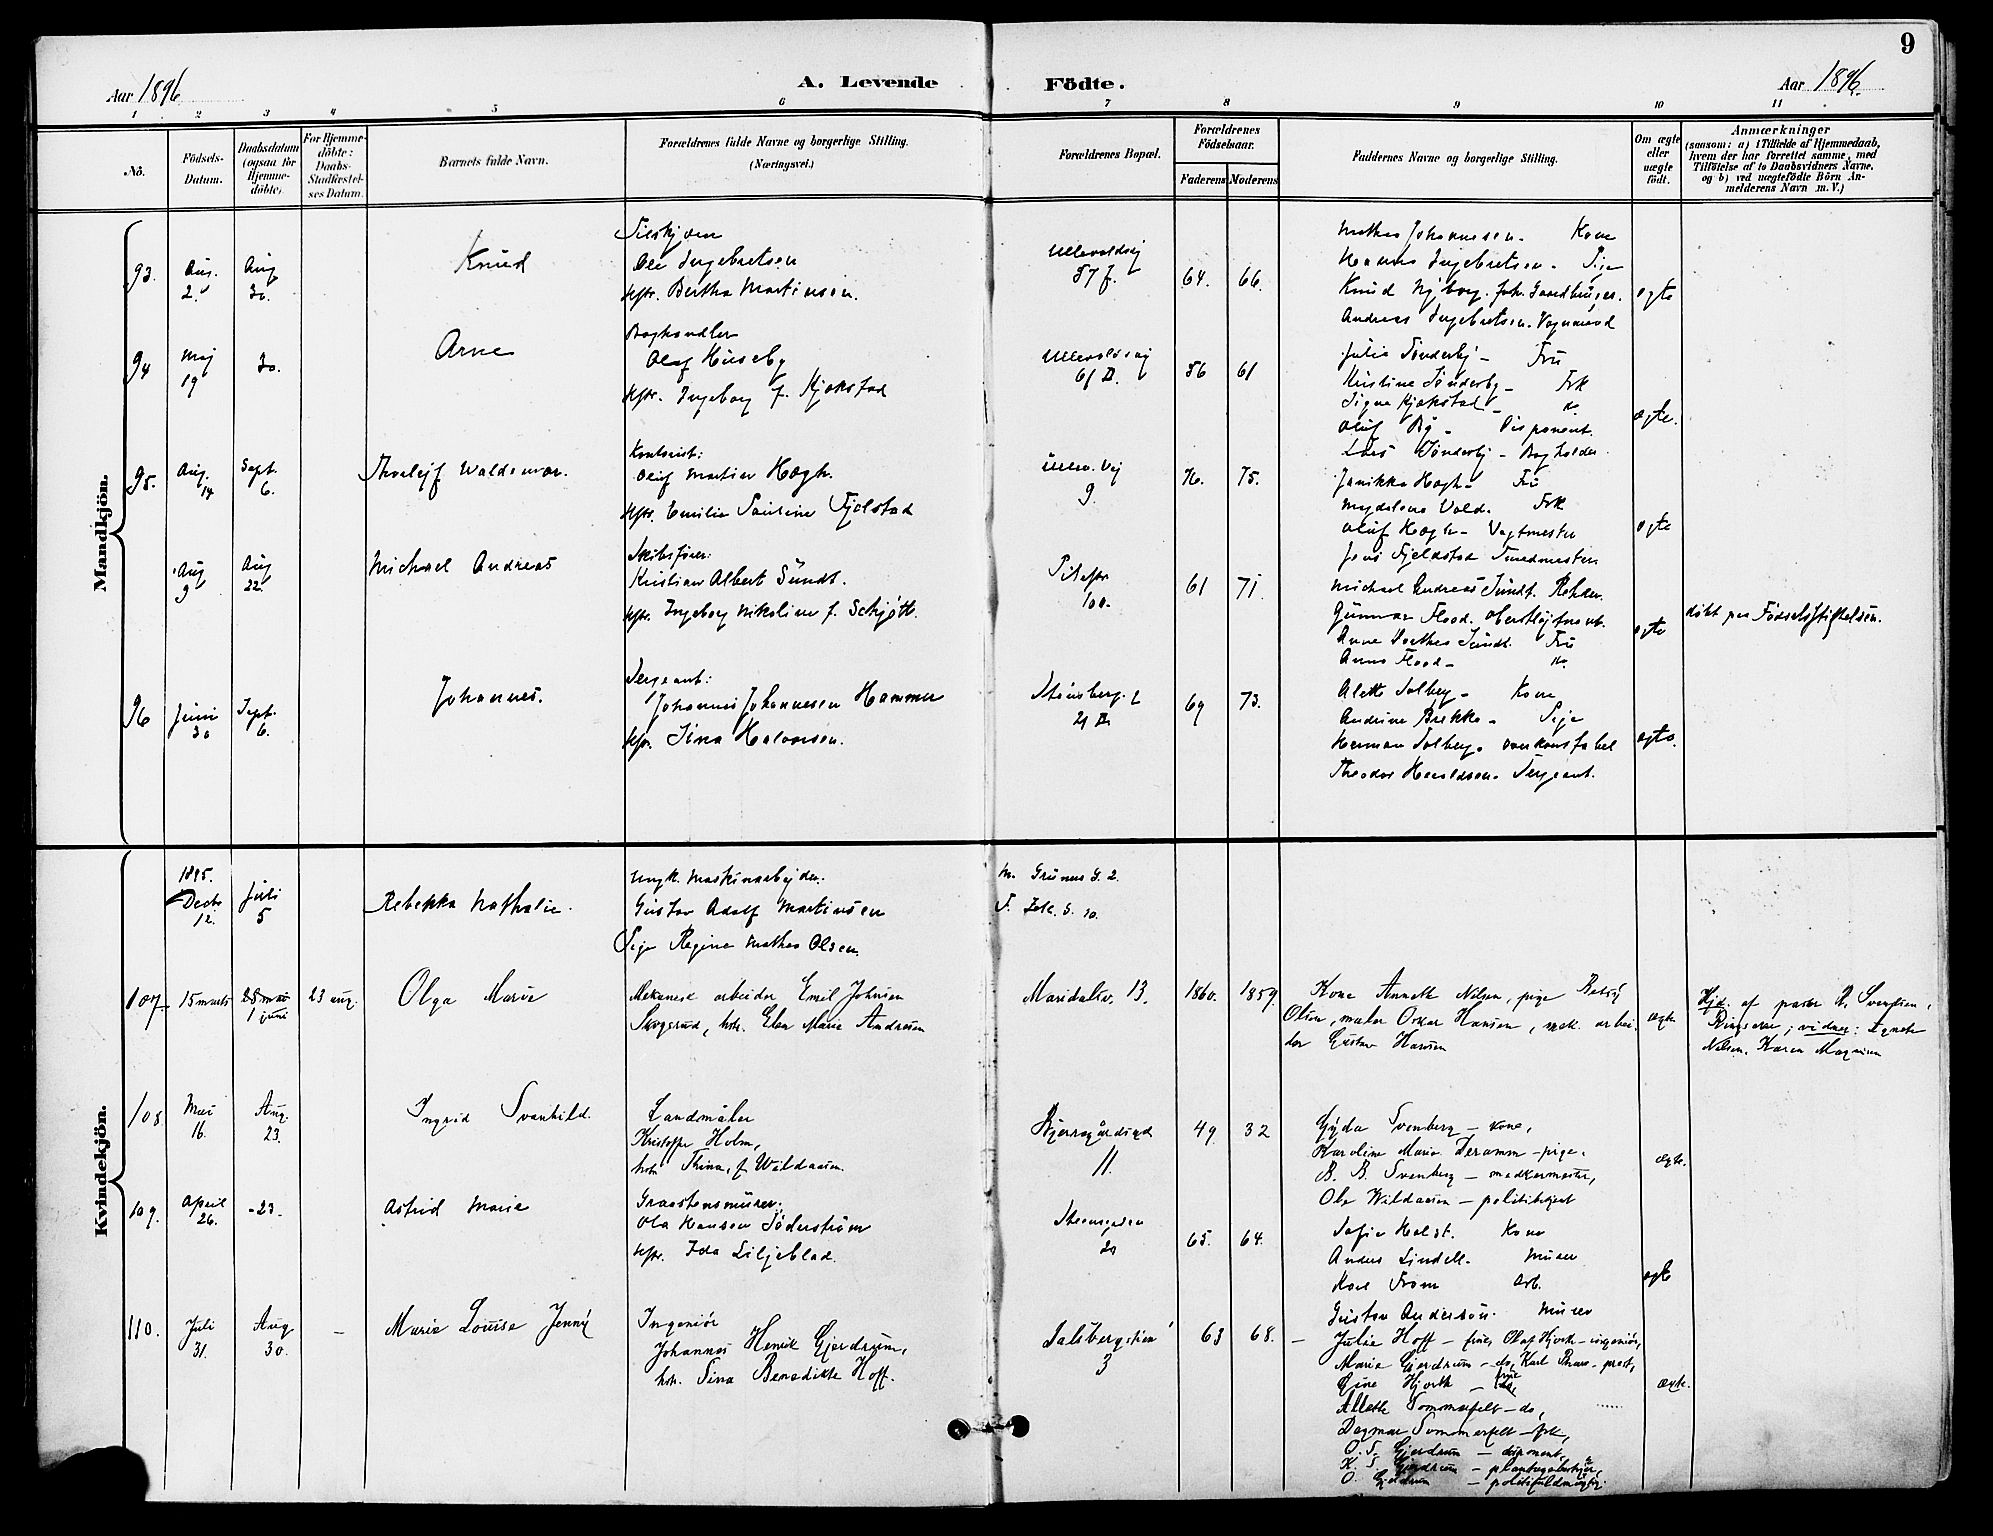 9
Aar 1896
A. Levende Födte.
Aar 1896.
1 2 3 4 5 6 7 8 9 10 11
No.
Födsels-Datum.
Daabsdatum (ogsaa för Hjemme-döbte).
For Hjemme-döbte: Daabs-Stadfæstel-ses Datum.
Barnets fulde Navn.
Forældrenes fulde Navne og borgerlige Stilling. (Næringsvei.)
Forældrenes Bopæl.
Forældrenes Födselsaar.
Faderens
Moderens
Faddernes Navne og borgerlige Stilling.
Om ægte eller uægte födt.
Anmærkninger (saasom: a) i Tilfælde af Hjemmedaab, hvem der har forrettet samme, med Tilföielse af to Daabsvidners Navne, og b) ved uægtefödte Börn Anmelderens Navn m. V.)
Mandkjön.
93. Aug. 2. Aug 30. Knud
Ole Ingebretsen
Hstr. Bertha Martinsen.
Ullevoldsvj 57 f. 64. 66.
Mathea Johannesen. Kone
Hanna Ingebretsen. Pige
Knud Nyborg. Gaardbruger.
Andreas Ingebretsen. Vognmand
ægte
94 Maj 19 30. Arne
Boghandler
Olaf Huseby
Hstr. Ingeborg f. Kjøkstad
Ullevoldsvej 61 II. 56 61
Julie Sønderby - Fru
Kristine Sønderby - Frk
Signe Kjøkstad - do
Oluf By - Disponent.
Lars Sønderby - Bogholder
ægte.
95. Aug. 14 Sept. 6. Thorlejf Waldemar.
Kontorist:
Oluf Martin Høgh.
Hstr. Emilie Pauline Fjelstad
Ullev. Vej 9. 76. 75.
Jannikka Høgh - Fru
Magdalena Vold. Frk
Oluf Høgh - Vagtmester
Jens Fjeldstad Smedmester
ægte
Aug 9 Aug 22. Michael Andreas
Skibsfører:
Kristian Albert Sundt.
Hstr. Ingeborg Nikoline f. Schjøtt.
Pilestr 100. 61 71
Michael Andreas Sundt. Reder.
Gunnar Flood. Oberstløjtnant.
Anne Dorthea Sundt. Fru
Anna Flood - do.
ægte
døbt paa Fødselsstiftelsen.
96 Juni 30 Sept. 6. Johannes.
Sergeant:
Johannes Johannesen Hammer
Hstr. Sina Halvorsen.
Stensberg. g 21 II. 69 73.
Alette Solberg - Kone
Andrine Brekke - Pige
Herman Solberg. Overkonstabel
Theodor Haraldsen. Sergeant.
ægte.
Kvindekjön.
1895. Decbr 12. Juli 5 Rebekka Nathalie.
Ungk. Maskinarbejder:
Gustav Adolf Martinsen
Pige Regine Mathea Olsen
M. Grüners G. 2.
F. 10.
107. 15 marts 1 juni 23 aug. Olga Marie
Mekanisk arbeider Emil Johnsen
Skogsrud, hstr. Elen Marie Andresen
Maridalsv. 13. 1860. 1859.
Kone Annette Nilsen, pige Betsy
Olsen, maler Oskar Hansen, mek. arbei-
der Gustav Hansen
ægte
Hjd. af pastor R. Svendsen,
Ringsaker; vidner: Agnete
Nilsen, Karen Magnisen
108 Mai 16. Aug. 23. Ingrid Svanhild.
Landmåler
Kristoffer Holm,
hstr Thina, f. Wildaasen.
Bjerregårdsgd 11. 49 32
Gyda Svenberg - kone,
Karoline Marie Deramm - pige,
B. B. Svenberg - snedkermester,
Ole Wildaasen - politibetjent
ægte.
109. April 26. - 23. Astrid Marie
Graastensmurer:
Ola Hansen Söderström
Hstr. Ida Liljeblad.
20 65. 64.
Sofie Holst. Kone
Anders Lindell. Murer
Karl From Arb.
Gustav Anderson. Murer
ægte
110. Juli 31. Aug 30. - Marie Louise Jenny
Ingeniør
Johannes Henrik Gjerdrum,
hstr. Sina Benedikte Hoff.
Dalsbergstien 3 63 68.
- Julie Hoff - frue, Olaf Hjorth - ingeniør,
Marie Gjerdrum - do, Karl - prest,
Gine Hjorth - frue
Allette Sommerfelt - do,
Dagmar Sommerfelt - frk,
O. S. Gjerdrum - disponent,
K. S. Gjerdrum - plantagebestyrer,
O. Gjerdrum - politifuldmægtig.
ægte.